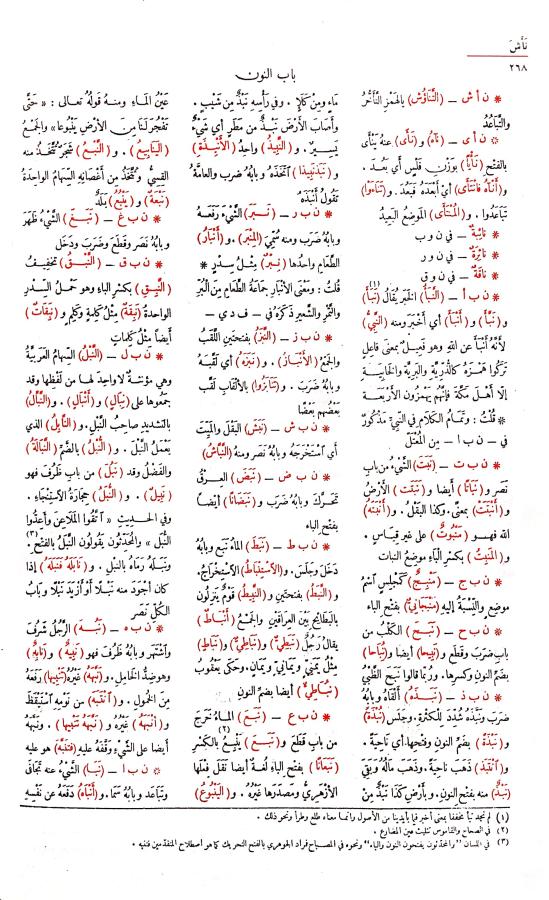 نَأَشَ
٢٦٨
باب النون
* ن أ ش – (التَّنَاؤُش) بالهَمْزِ التَّأَخُّر
والتَّبَاعُدُ
* ن أ ى – (نَآهُ) و (نَأَى) عنه يَنْأَى
بالفتح (نَأْيًا) بوَزْنِ فَلْسٍ أي بَعُدَ .
و (أَنْآهُ فَانْتَأَى) أي أَبْعَدَهُ فَبَعُدَ . و (تَنَاءَوْا)
تَبَاعَدُوا . و (المُنْتَأَى) المَوْضِعُ البَعِيدُ
* نائبةٌ – في ن و ب
* نائرةٌ – في ن و ر
* ناقةٌ – في ن و ق
* ن ب أ – (النَّبَأُ) الخَبَرُ يُقالُ (نَبَأَ)
و (نَبَّأَ) و (أَنْبَأَ) أي أخبر ومنه (النَّبِيُّ)
لأنَّهُ أَنْبَأَ عن اللهِ وهو فَعِيلٌ بمعنى فاعِلٍ
تركوا هَمْزَهُ كالذُّرِّيَّةِ والبَرِيَّةِ والخَابِيَةِ
إلا أَهْلَ مَكَّةَ فإنَّهم يَهْمِزُون الأَرْبَعَةَ
* قُلْتُ : وتَمَامُ الكَلامِ في النبيِّ مَذْكُورٌ
في – ن ب ا – مِن المُعْتَلِّ
* ن ب ت – (نَبَتَ) الشَّيْءُ من باب
نَصَر و (نَبَاتًا) أيضا و (نَبَتَت) الأَرْضُ
و (أَنْبَتَت) بمعنًى . وكذا البَقْلُ . و (أَنْبَتَهُ)
الله فهــو (مَنْبُوتٌ) على غير قِيَاسٍ .
و (المَنْبِتُ) بكسر الباءِ موضعُ النبات
* ن ب ج – (مَنْبِج) كَمَجْلِسٍ اسمُ
موضِعٍ والنِّسْبَةُ إليه (مَنْبَجَانِيٌّ) بفتح الباء
* ن ب ح – (نَبَحَ) الكَلْبُ من
باب ضَرَبَ وقَطَعَ و (نَبِيحا) أيضا و (نُبَاحا)
بضم النون وكسرها . ورُبَّما قالوا نَبَحَ الظَّبْيُ
* ن ب ذ – (نَبَذَهُ) أَلْقَاهُ وبابُهُ
ضَرَبَ ونَبَّذَهُ شُدِّدَ للكَثْرةِ . وجَلَسَ (نُبْذَةً)
و (نَبْذَةً) بضَمِّ النون وفتحها أي نَاحِيَةً .
و (انْتَبَذَ) ذهَبَ ناحيةً . وذهب مالُهُ وبَقِيَ
(نَبْذٌ) منه بفتح النون . وبأرضِ كذا نَبْذٌ من
ماءٍ ومِن كَلَأٍ . وفي رَأْسِهِ نَبْذٌ من شَيْبٍ .
وأَصَابَ الأرضَ نَبْذٌ من مَطَرٍ أي شيءٌ
يَسيرٌ . و (النَّبِيذُ) واحدُ (الأَنْبِذَةِ)
و (نَبَذَ نَبِيذًا) اتَّخَذَهُ وبابُهُ ضرب والعامَّةُ
تقول أَنْبَذَهُ
* ن ب ر – (نَبَرَ) الشَّيْءَ رَفَعَهُ
وبابُهُ ضَرَبَ ومنه سُمِّيَ (المِنْبَر) . و (أَنْبَارُ)
الطَّعامِ واحدُها (نِبْرٌ) مِثْلُ سِدْرٍ *
قُلْتُ : ومعنى الأَنْبَارِ جَمَاعَةُ الطَّعامِ مِنَ البُرِّ
والتَّمْرِ والشَّعِيرِ ذَكَرَهُ في – ف د ي –
* ن ب ز – (النَّبَزُ) بفتحتين اللَّقَبُ
والجمعُ (الأَنْبَازُ) . و (نَبَزَهُ) أي لَقَّبَهُ
وبابُهُ ضرب . و (تَنَابَزُوا) بالأَلْقَابِ لَقَّبَ
بَعْضُهم بَعْضًا
* ن ب ش – (نَبَشَ) البَقْلَ والمَيِّتَ
أي اسْتَخْرَجَهُ وبابُهُ نصر ومنه (النَّبَّاشُ)
* ن ب ض – (نَبَضَ) العِرْقُ
تَحَرَّكَ وبابُهُ ضرب و (نَبَضَانًا) أيضًا
بفتح الباء
* ن ب ط – (نَبَطَ) الماءُ نَبَعَ وبابُهُ
دَخَلَ وجَلَسَ . و (الاسْتِنْبَاطُ) الاسْتِخْراجُ .
و (النَّبَطُ) بفتحتين و (النَّبِيطُ) قومٌ يَنْزِلون
بالبَطَائِحِ بينَ العِرَاقَين والجمعُ (أَنْبَاطٌ)
يقالُ رجلٌ (نَبَطِيٌّ) و (نَبَاطِيٌّ) و (نَبَاطٍ)
مِثْلُ يَمَنِيٍّ ويَمَانِيٍّ ويَمَانٍ . وحَكَى يعقوبُ
(نُبَاطِيٌّ) أيضا بضم النون
* ن ب ع – (نَبَعَ) المَاءُ خَرَجَ
من باب قَطَعَ و (نَبَعَ) يَنْبِعُ بالكسر (٢)
(نَبَعَانًا) بفتح الباءِ لُغةٌ أيضا نَقَلَ فِعْلَها
الأَزْهَرِيُّ ومصدرَها غَيْرُهُ . و (اليَنْبُوعُ)
عَيْنُ المَاءِ ومنه قولُهُ تعالى : « حتَّى
تَفْجُرَ لَنَا مِنَ الأَرْضِ يَنْبُوعا » والجمعُ
(اليَنَابِيعُ) . و (النَّبْعُ) شَجَرٌ تُتَّخَذُ منه
القِسِيُّ وتُتَّخَذُ من أَغْصَانِهِ السِّهامُ الواحدةُ
(نَبْعَةٌ) و (يَنْبُعُ) بَلَدٌ
* ن ب غ – (نَبَغَ) الشَّيْءُ ظَهَرَ
وبابُهُ نَصَر وقَطَعَ وضَرَبَ ودَخَلَ
* ن ب ق – (النَّبْقُ) تخفيفُ
(النَّبِق) بكسر الباءِ وهو حَمْلُ السِّدْرِ
الواحدةُ (نَبِقَةٌ) مِثْلُ كَلِمَةٍ وكَلِمٍ و (نَبِقَاتٌ)
أيضًا مِثْلُ كَلِمَاتٍ
* ن ب ل – (النَّبْلُ) السِّهامُ العَرَبِيَّةُ
وهي مؤنَّثَةٌ لا واحدَ لها من لَفْظِها وقد
جَمَعُوها على (نِبَالٍ) و (أَنْبَالٍ) . و (النَّبَّالُ)
بالتشديد صاحبُ النَّبْلِ . و (النَّابِلُ) الذي
يَعْمَلُ النَّبْلَ . و (النُّبْلُ) بالضَّمِّ (النَّبَالَةُ)
والفَضْلُ وقد (نَبُلَ) من باب ظَرُفَ فهو
(نَبِيلٌ) . و (النُّبَلُ) حِجَارَةُ الاسْتِنْجَاءِ .
وفي الحديث « اتَّقُوا المَلَاعِنَ وأَعِدُّوا
النُّبَلَ » والمُحَدِّثون يقولون النَّبَلُ بالفتح (٣).
ونَبَلَهُ رَمَاهُ بالنَّبْلِ . و (نَابَلَهُ فَنَبَلَهُ) إذا
كان أَجْوَدَ منه نَبْلًا أو أَزْيَدَ نُبْلًا وبابُ
الكُلِّ نَصَر
* ن ب ه – (نَبُهَ) الرَّجُلُ شَرُفَ
واشْتَهَر وبابُهُ ظَرُفَ فهو (نَبِيهٌ) و (نَابِهٌ)
وهو ضِدُّ الخَامِلِ . و (نَبَّهَهُ) غَيْرُهُ (تَنْبِيهًا) رَفَعَهُ
مِنَ الخُمُولِ . و (انْتَبَهَ) من نَومِهِ اسْتَيْقَظَ
و (أَنْبَهَهُ) غَيْرُهُ و (نَبَّهَهُ تَنْبِيهًا) . ونَبَّهَهُ
أيضا على الشَّيْءِ وَقَفَهُ عليه (فَتَنَبَّهَ) هو عليه
* ن ب ا – (نَبَا) الشَّيْءُ عنه تَجَافَى
وتَبَاعَدَ وبابُهُ سَمَا . و (أَنْبَاهُ) دَفَعَهُ عن نفسِهِ
(١) لم نجد نبأ مخففا بمعنى أخبر فيما بأيدينا من الأصول وانما معناه طلع وطرأ ونحو ذلك .
(٢) في الصحاح والقاموس تثليث عين المضارع .
(٣) في اللسان "والمحدثون يفتحون النون والباء" ونحوه في المصباح فمراد الجوهري بالفتح التحريك كما هو اصطلاح المتقدمين فتنبه .